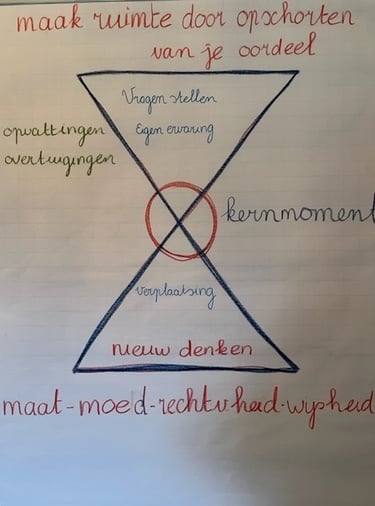 maak ruimte door opschorten
van je oordeel
Vragen stellen
opvattingen
Eigen ervaring
overtuigingen
kernmoment
verplaatsing
nieuw denken
maat-moed-rechtvheid-wijsheid